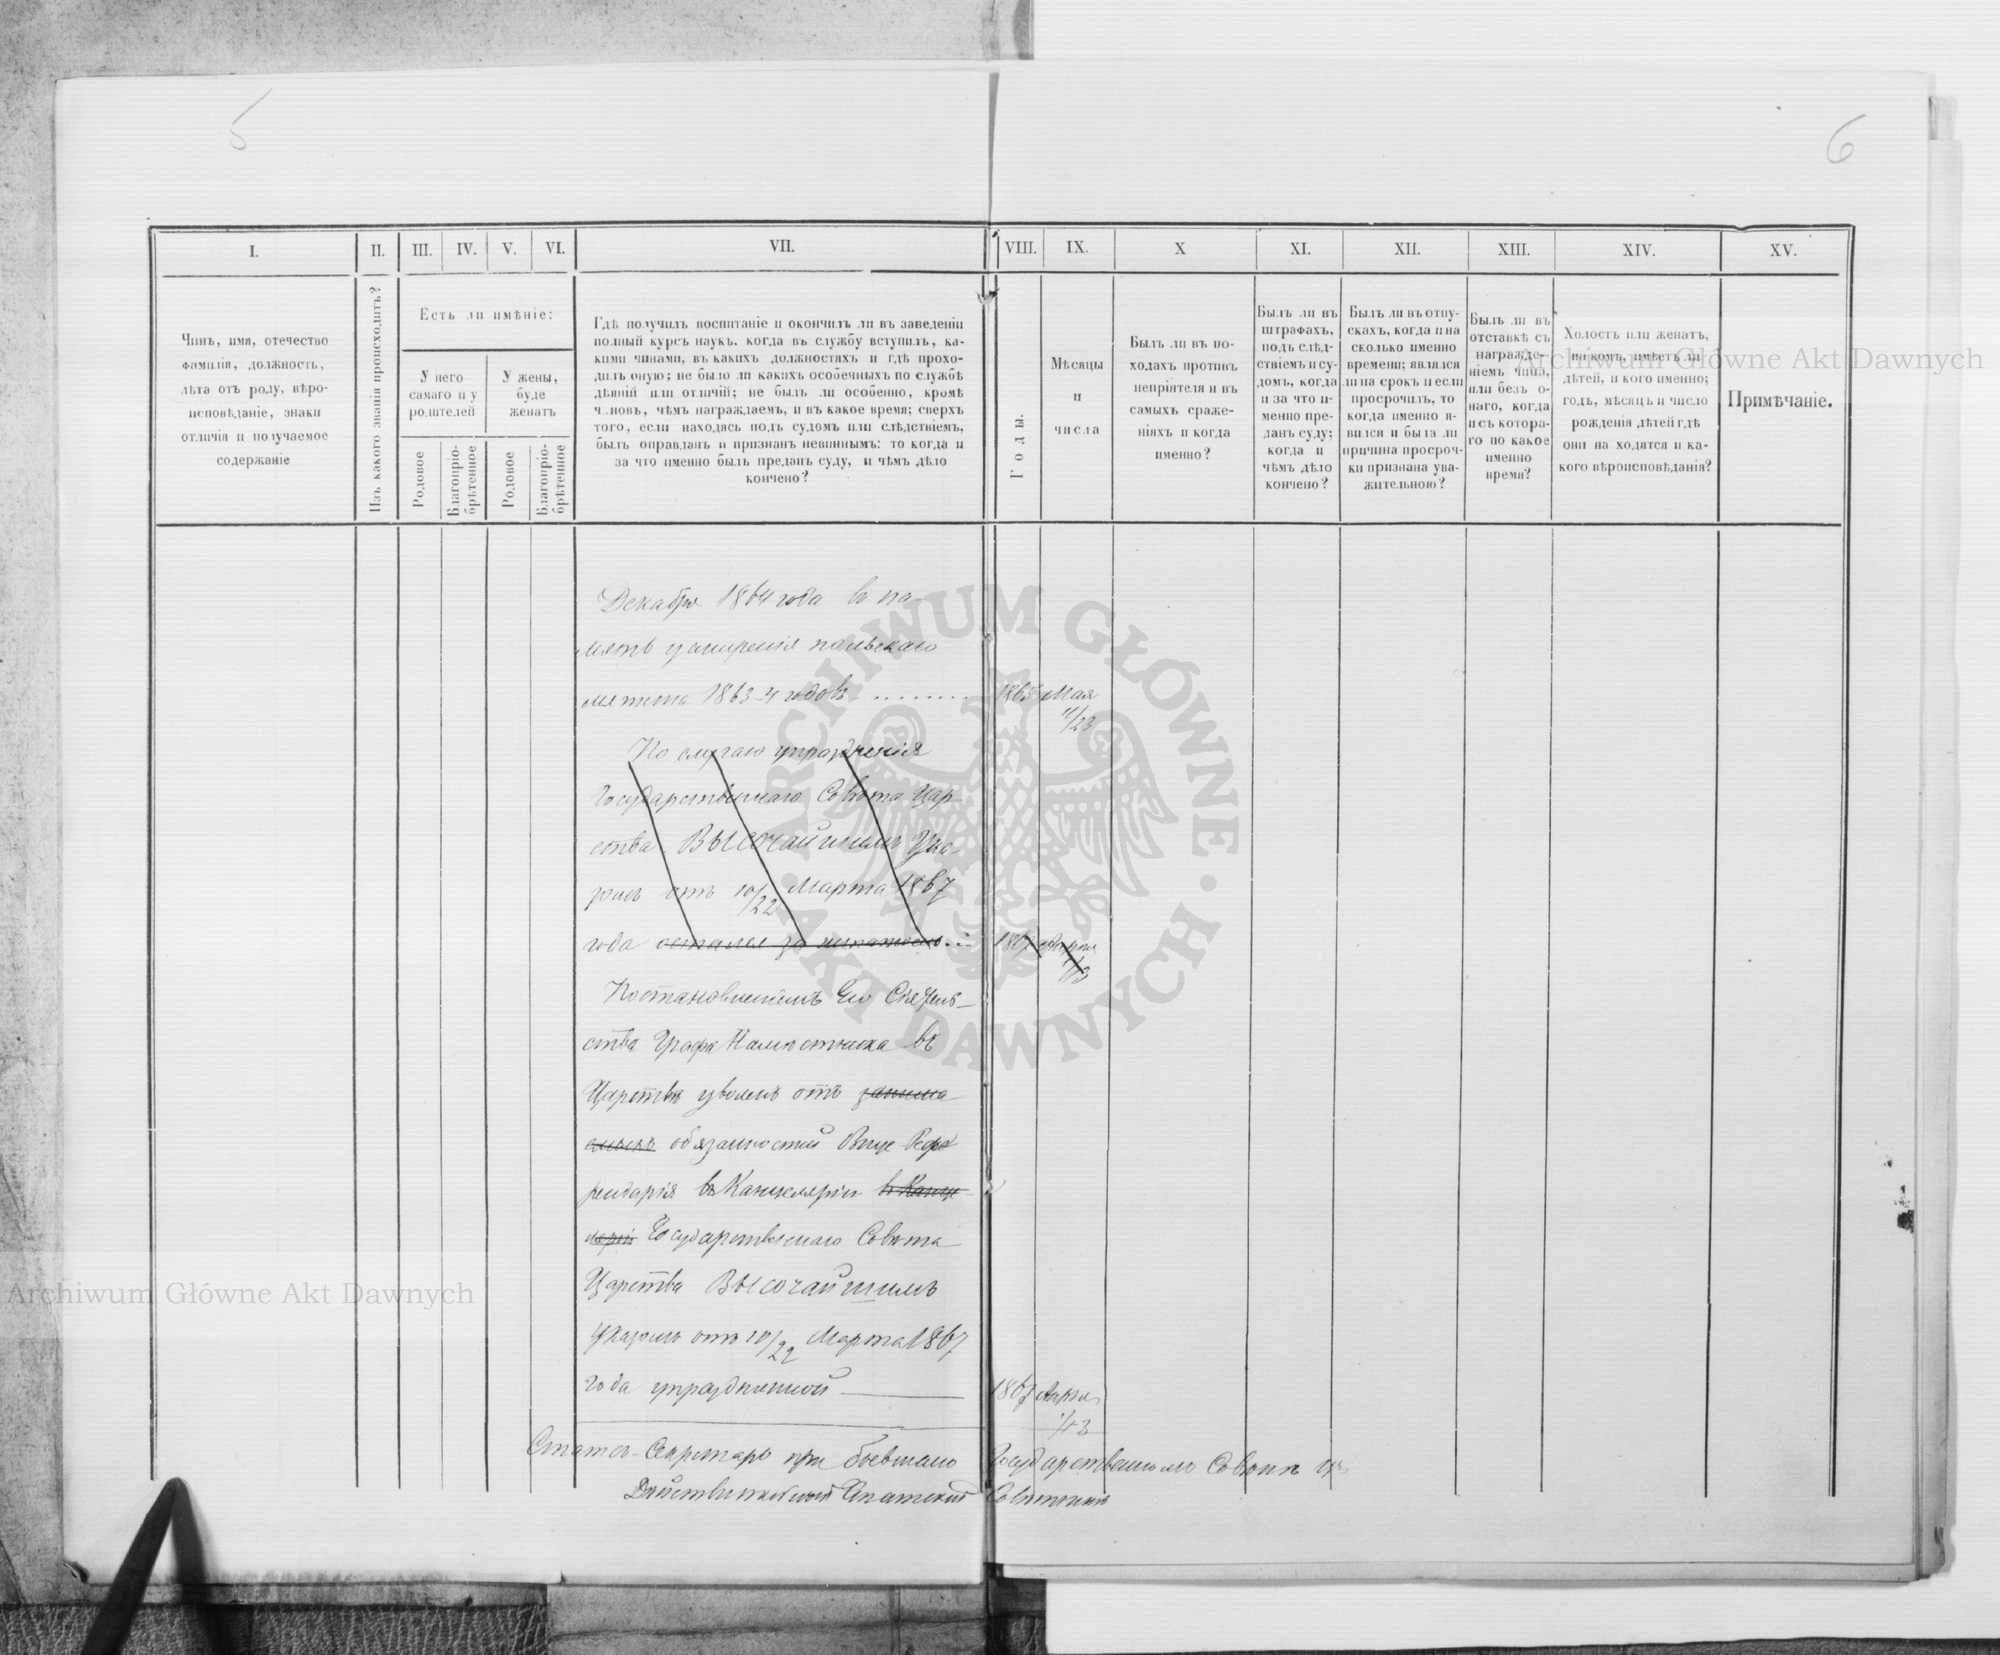 5
6
I.
II.
III.
IV.
V.
VI.
VII.
VIII.
IX.
X
XI.
XII.
XIII.
XIV.
XV.
Чинъ, имя, отечество
фамилія, должность,
лѣта отъ роду, вѣро-
исповѣданіе, знаки
отличія и получаемое
содержаніе
Изъ какого званія происходитъ?
Есть ли имѣніе:
У него
самаго и у
родителей
У жены,
буде
женатъ
Родовое
Благопріо-
брѣтенное
Родовое
Благопріо-
брѣтенное
Гдѣ получилъ воспитаніе и окончилъ ли въ заведеніи
полный курсъ наукъ. когда въ службу вступилъ, ка-
кими чинами, въ какихъ должностяхъ и гдѣ прохо-
дилъ оную; не было ли какихъ особенныхъ по службѣ
дѣяній или отличій; не былъ ли особенно, кромѣ
чиновъ, чѣмъ награждаемъ, и въ какое время; сверхъ
того, если находясь подъ судомъ или слѣдствіемъ,
былъ оправданъ и признанъ невиннымъ: то когда и
за что именно былъ преданъ суду, и чѣмъ дѣло
кончено?
Годы.
Мѣсяцы
и
числа
Былъ ли въ по-
ходахъ противъ
непріятеля и въ
самыхъ сраже-
ніяхъ и когда
именно?
Былъ ли въ
штрафахъ,
подъ слѣд-
ствіемъ и су-
домъ, когда
и за что и-
менно пре-
данъ суду;
когда и
чѣмъ дѣло
кончено?
Былъ ли въ отпу-
скахъ, когда и на
сколько именно
времени; являлся
ли на срокъ и если
просрочилъ, то
когда именно я-
вился и была ли
причина просроч-
ки признана ува-
жительною?
Былъ ли въ
отставкѣ съ
награжде-
ніемъ чина,
или безъ о-
наго, когда
и съ котора-
го по какое
именно
время?
Холостъ или женатъ,
на комъ, имѣетъ ли
дѣтей, и кого именно;
годъ, мѣсяцъ и число
рожденія дѣтей гдѣ
они на ходятся и ка-
кого вѣроисповѣданія?
Примѣчаніе.
Декабря 1864 года въ па-
мять усмиренія польскаго
мятежа 1863-4 годовъ ........ 1865 Мая
11/23
По случаю упраздненія
Государственнаго Совѣта Цар-
ства ВЫСОЧАЙшимъ Ука-
зомъ отъ 10/22 Марта 1867
года остался за штатомъ... 1867 Апрѣля
1/13
Постановленіемъ Его Сіятель-
ства Графа Намѣстника въ
Царствѣ уволенъ отъ занима
емыхъ обязанностей Вице Рефе
рендарія въ Канцеляріи въ Канце
ляріи Государственнаго Совѣта
Царства ВЫСОЧАЙшимъ
Указомъ отъ 10/22 Марта 1867
года упраздненной 1867 Апрѣля
1/13
Статсъ-Секретарь при бывшемъ Государственномъ Совѣтѣ
Дѣйствительный Статскій Совѣтникъ
Archiwum Główne Akt Dawnych
Archiwum Główne Akt Dawnych
ARCHIWUM GŁÓWNE · AKT DAWNYCH ·